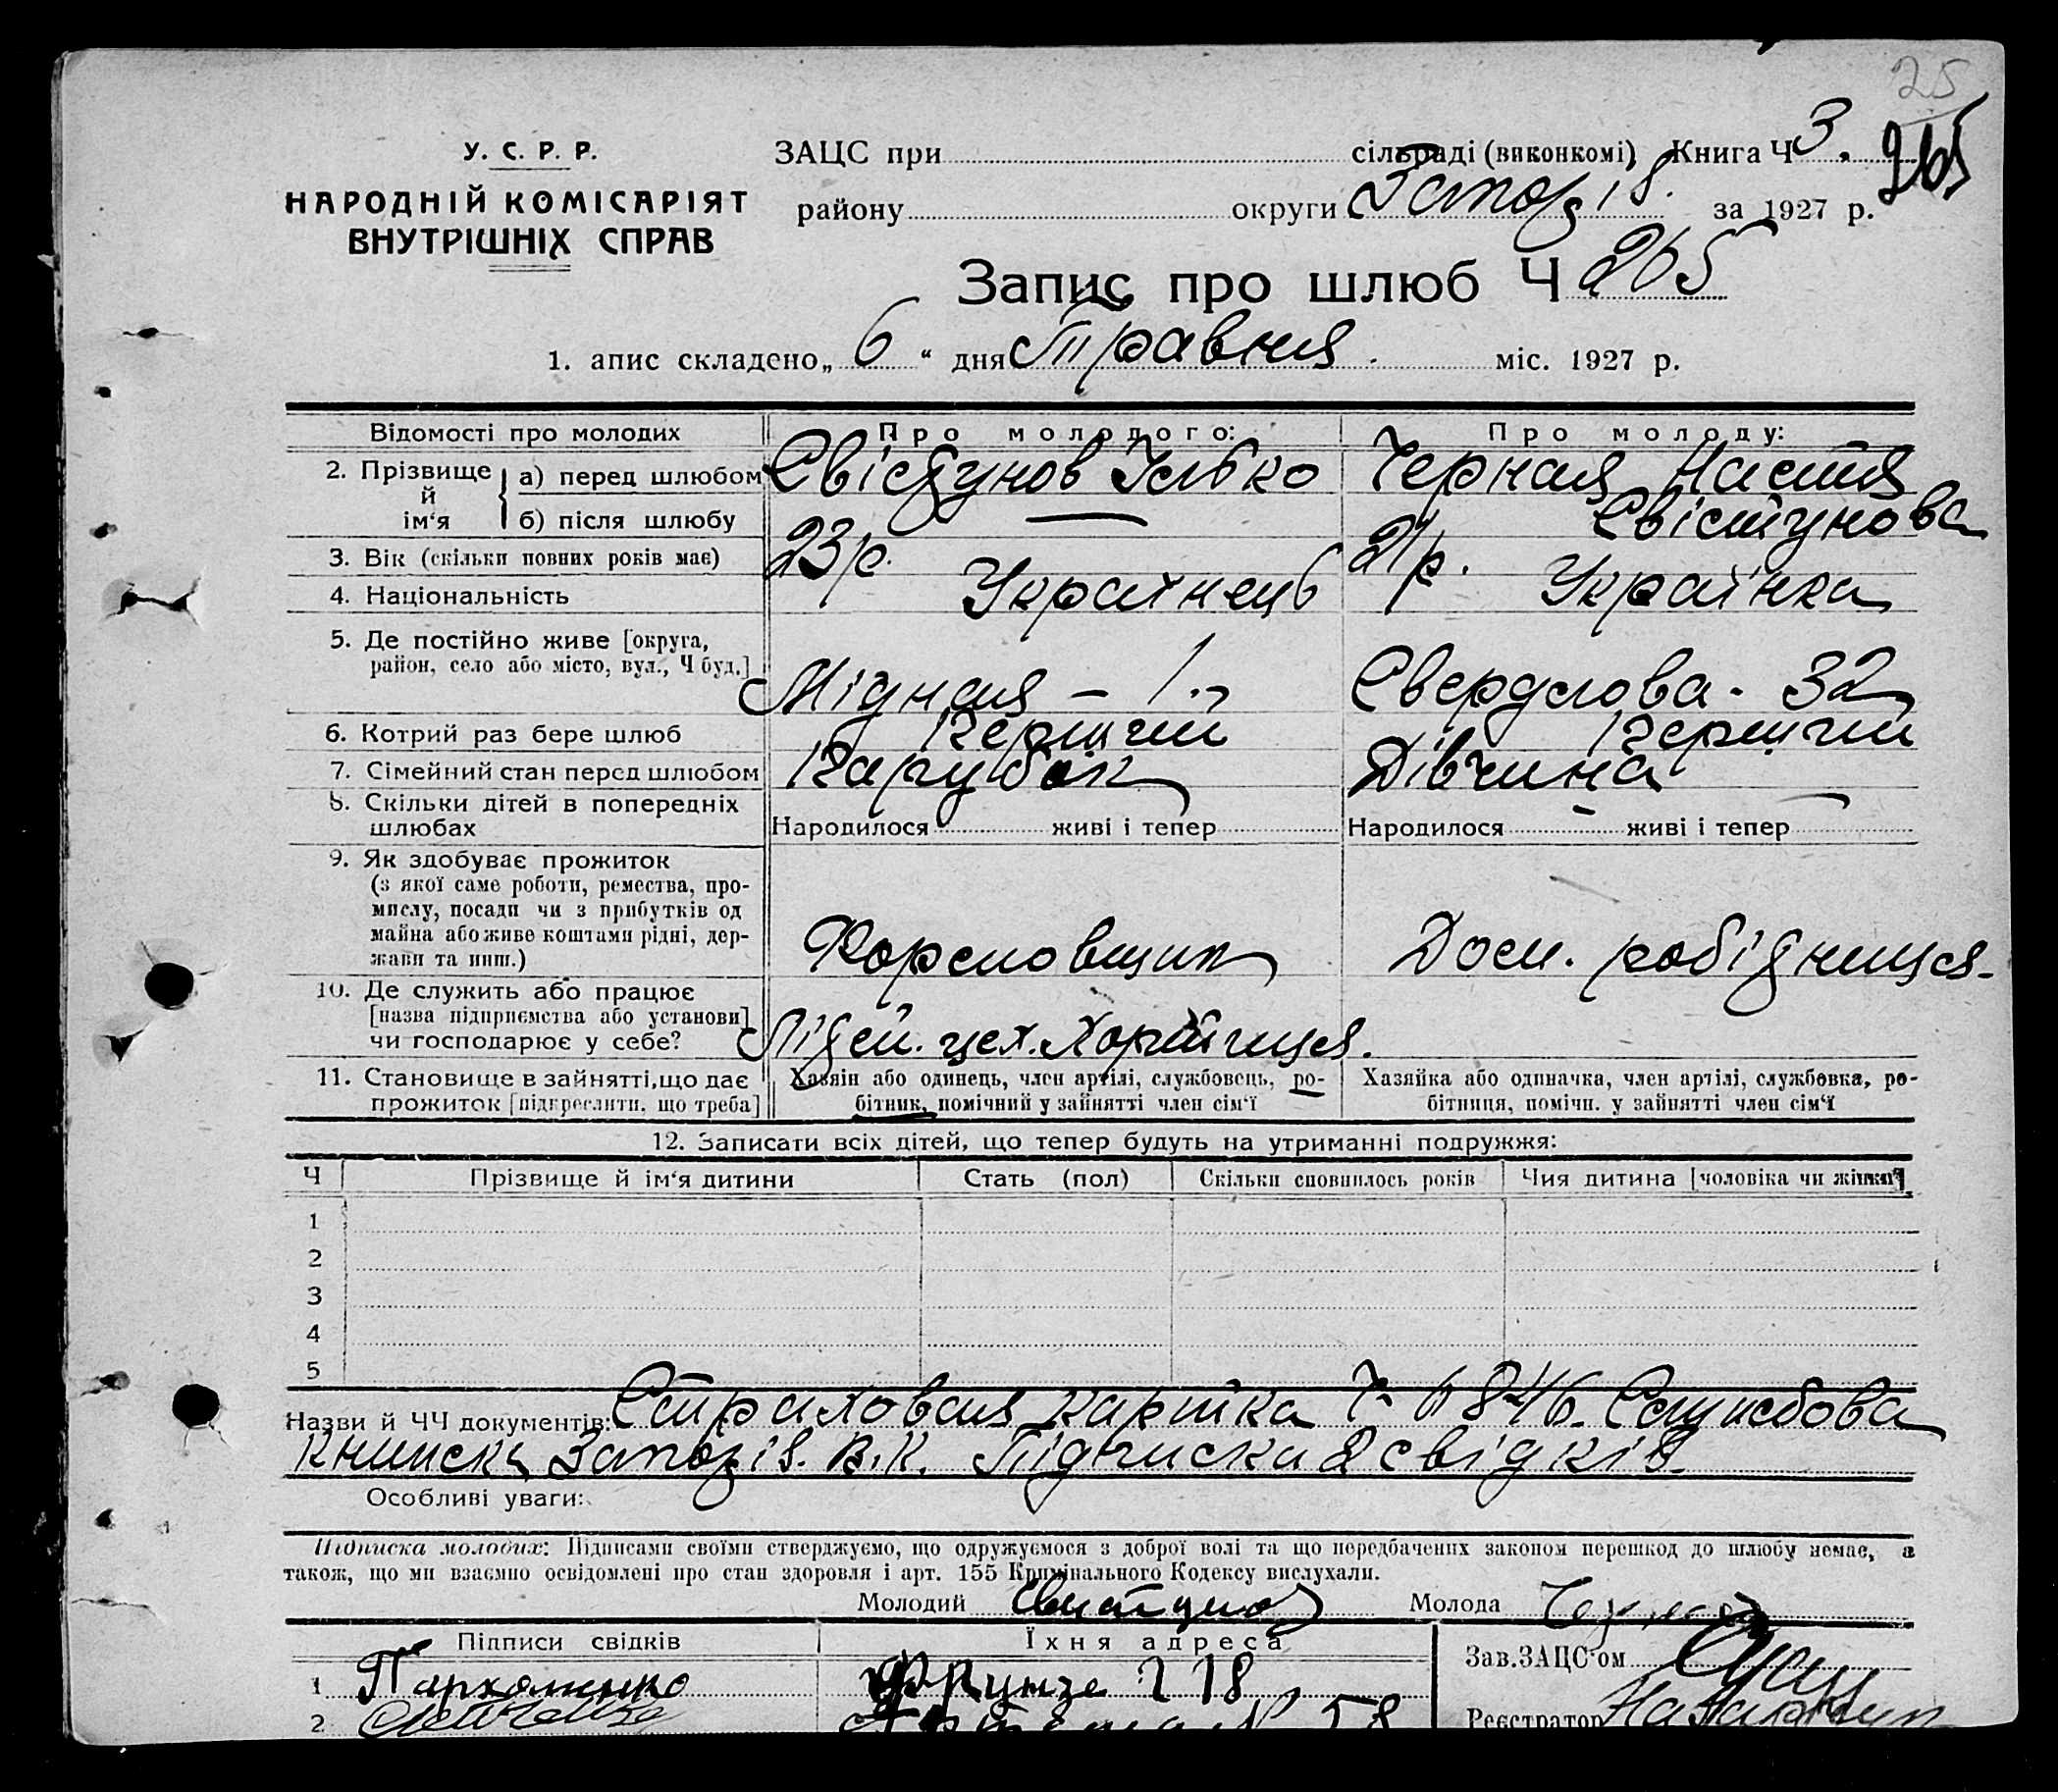 25
У. С. Р. Р.
НАРОДНІЙ КОМІСАРІЯТ
ВНУТРІШНІХ СПРАВ
ЗАЦС при сільраді (виконкомі) Книга Ч 3. 265
району округи Запоріз. за 1927 р.
Запис про шлюб Ч 265
1. апис складено „ 6 “ дня Травня. міс. 1927 р.
Відомості про молодих Про молодого: Про молоду:
2. Прізвище й ім‘я а) перед шлюбом Свістунов Ілько Черная Настя
б) після шлюбу — Свістунова
3. Вік (скільки повних років має) 23 р. 21 р.
4. Національність Українець Українка
5. Де постійно живе [округа,
район, село або місто, вул., Ч буд.] Мідная – 1. Свердлова - 32
6. Котрий раз бере шлюб Перший Перший
7. Сімейний стан перед шлюбом Парубок Дівчина
8. Скільки дітей в попередніх
шлюбах Народилося живі і тепер Народилося – живі і тепер –
9. Як здобуває прожиток
(з якої саме роботи, ремества, про-
мислу, посади чи з прибутків од
майна або живе коштами рідні, дер-
жави та инш.) Формовщик Дом. робідниця
10. Де служить або працює
[назва підприємства або установи]
чи господарює у себе? Лідей. цех. Хортиця.
11. Становище в зайнятті, що дає
прожиток [підкреслити, що треба]
Хазяїн або одинець, член артілі, службовець, ро-
бітник, помічний у зайнятті член сім‘ї
Хазяйка або одиначка, член артілі, службовка, ро-
бітниця, помічн. у зайнятті член сім‘ї
12. Записати всіх дітей, що тепер будуть на утриманні подружжя:
Ч Прізвище й ім‘я дитини Стать (пол) Скільки сповнилось років Чия дитина [чоловіка чи жінки]
1
2
3
4
5
Назви й ЧЧ документів: Страховая картка Ч 6846. Службова
книжка Запоріз. В.К. Підписка 2 свідків.
Особливі уваги:
Підписка молодих: Підписами своїми стверджуємо, що одружуємося з доброї волі та що передбачених законом перешкод до шлюбу немає, а
також, що ми взаємно освідомлені про стан здоровля і арт. 155 Кримінального Кодексу вислухали.
Молодий Свистунов Молода
Підписи свідків Їхня адреса
Зав. ЗАЦС‘ом
1 Пархоменко Фрунзе 18
2 58
Реєстратор